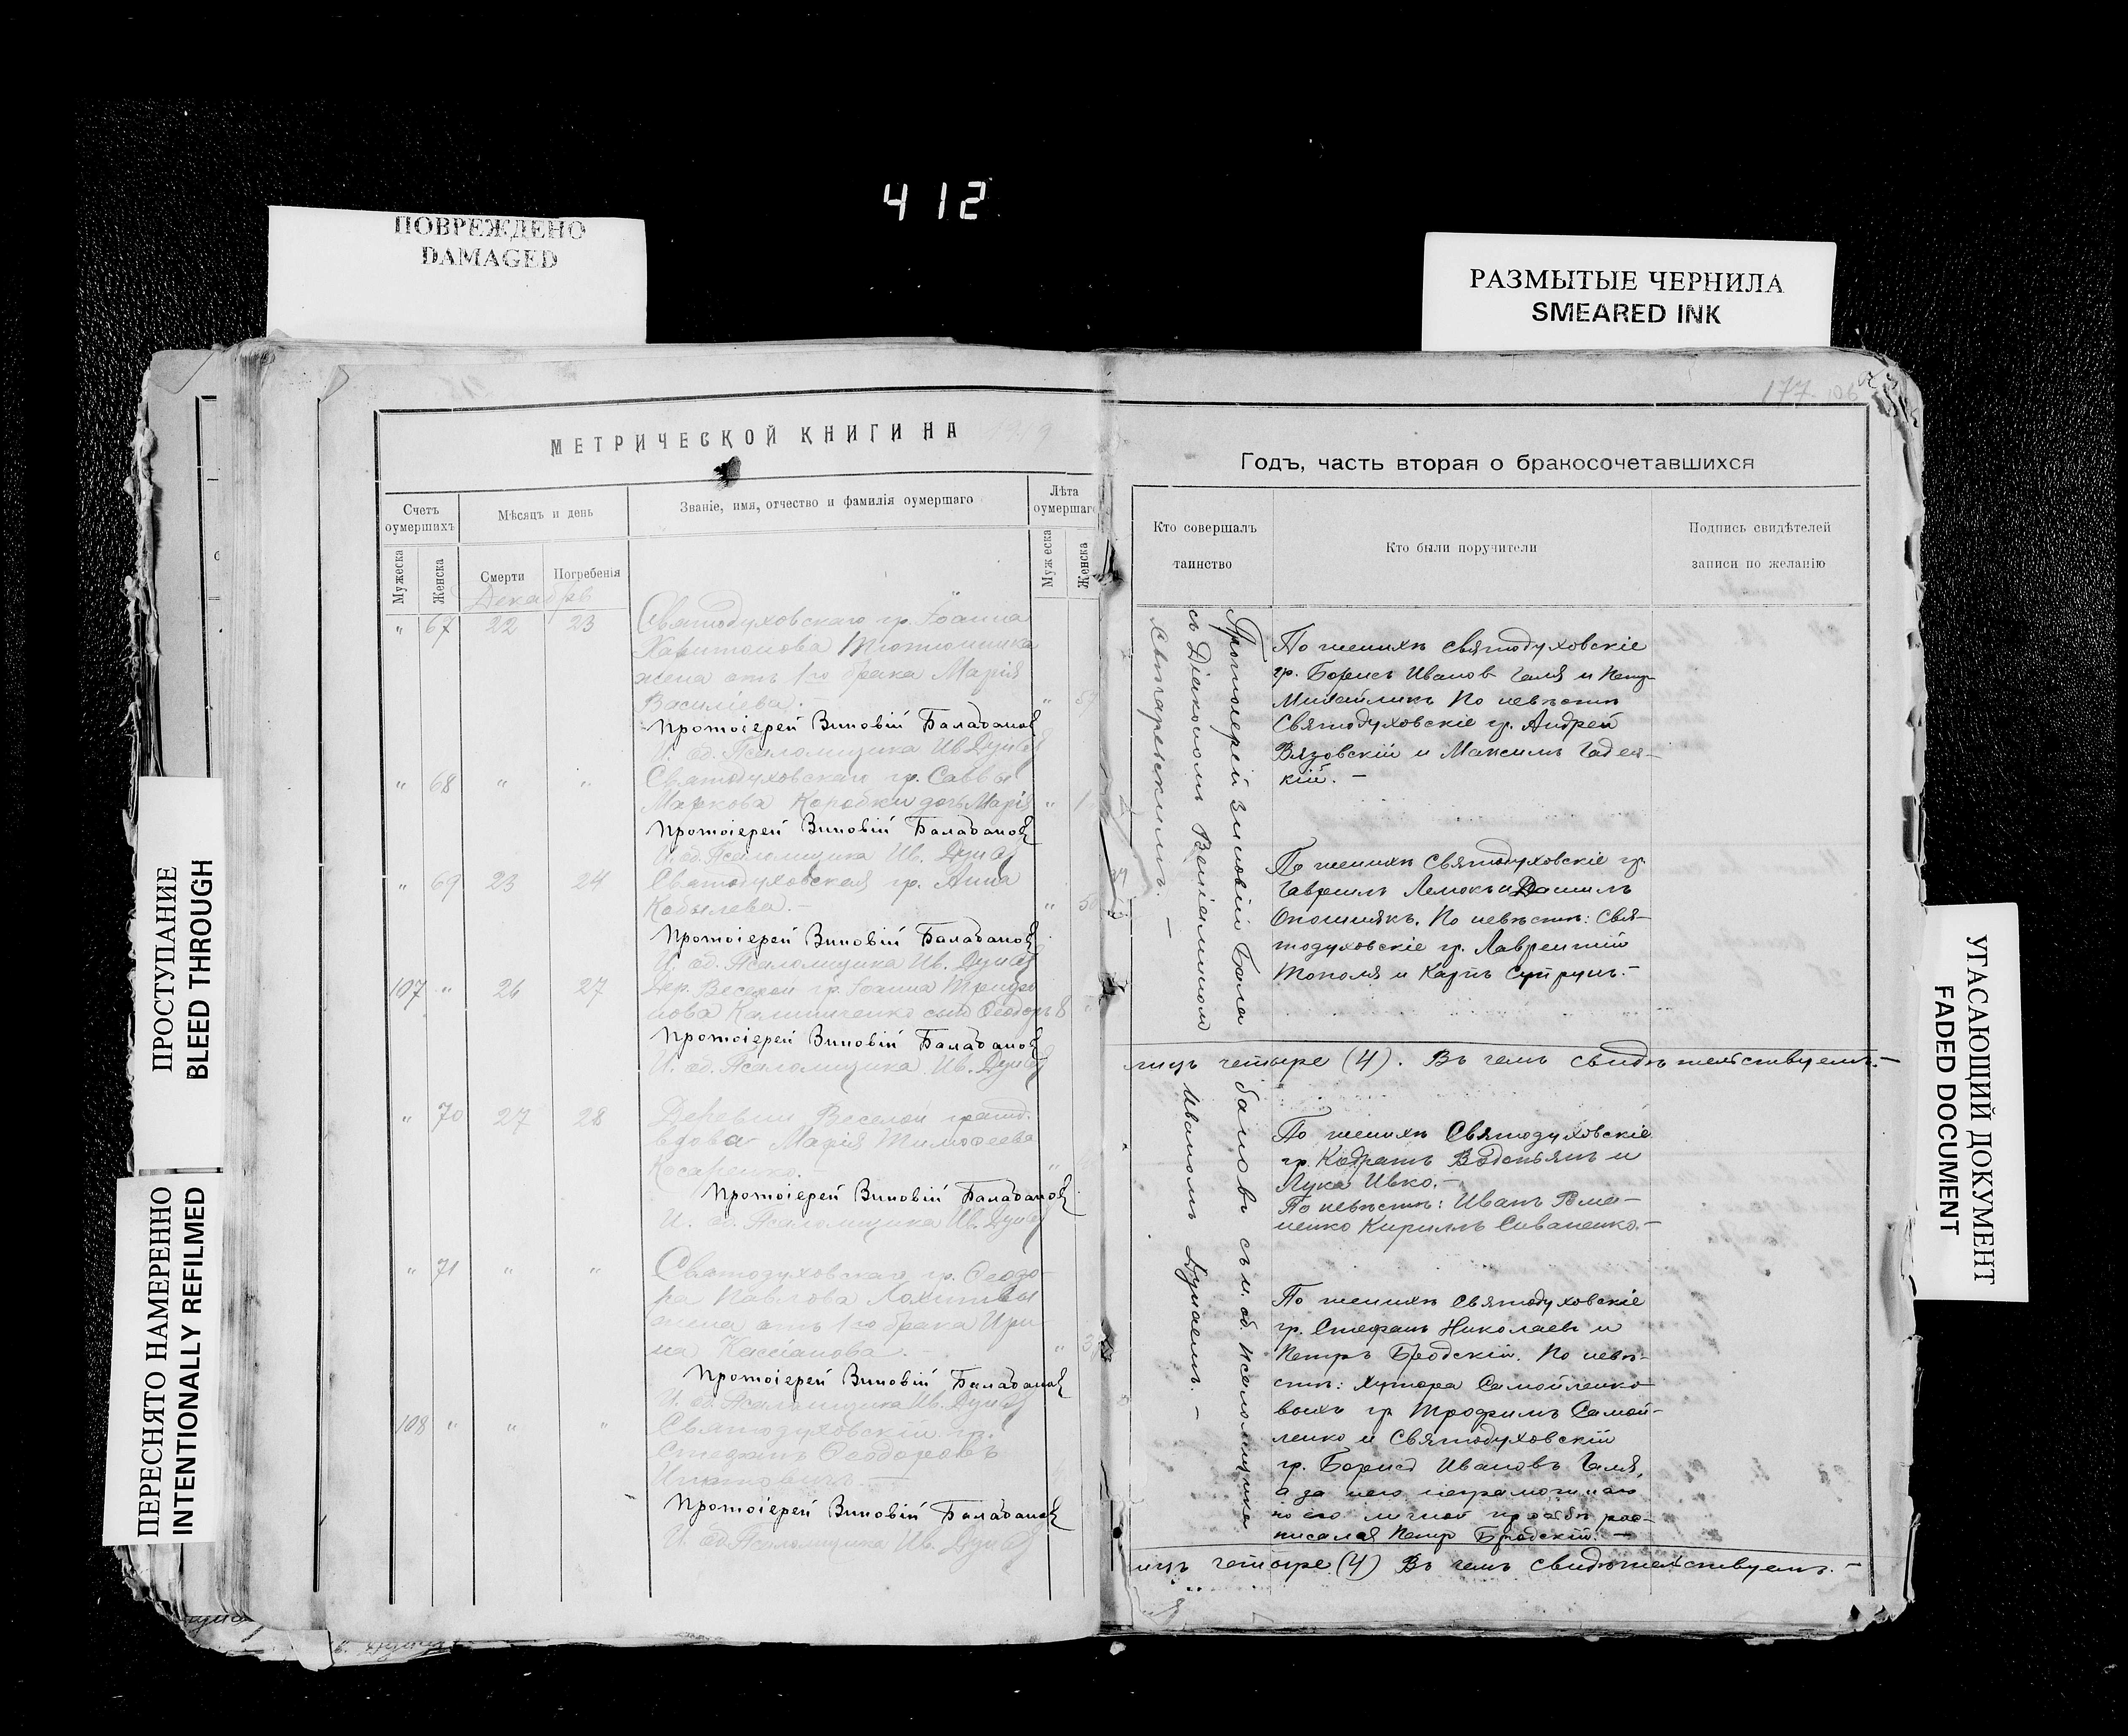 412
ПОВРЕЖДЕНО
DAMAGED
РАЗМЫТЫЕ ЧЕРНИЛА
SMEARED INK
ПРОСТУПАНИЕ
BLEED THROUGH
ПЕРЕСНЯТО НАМЕРЕННО
INTENTIONALLY REFILMED
УГАСАЮЩИЙ ДОКУМЕНТ
FADED DOCUMENT
МЕТРИЧЕСКОЙ КНИГИ НА
Счетъ оумершихъ
Мѣсяцъ и день
Званіе, имя, отчество и фамилія оумершаго
Лѣта оумершаго
Мужеска
Женска
Смерти
Погребенія
Мужеска
Женска
Декабрь
" 67 22 23 Святодуховскаго гр. Іоанна
Харитонова
жена отъ 1го брака Марія
Василіева. -
Протоіерей Зиновій Балабановъ
И. об. Псаломщика Ив. Дунаев
" 68 " " Святодуховскаго гр. Саввы
Маркова Коробки дочь Марія " 1
Протоіерей Зиновій Балабановъ
И. об. Псаломщика Ив. Дунаев
" 69 23 24 Святодуховская гр. Анна
Кобылева. -
Протоіерей Зиновій Балабановъ
И. об. Псаломщика Ив. Дунаев
107 " 26 27 Дер. Веселой гр. Іоанна
Калиниченко сынъ Ѳеодоръ 8
Протоіерей Зиновій Балабановъ
И. об. Псаломщика Ив. Дунаев
" 70 27 28 Деревни Веселой гражд.
вдова Марія Тимоѳеева
Косаренко. -
Протоіерей Зиновій Балабановъ
И. об. Псаломщика Ив. Дунаев
" 71 " " Святодуховскаго гр. Ѳеодо-
ра Павлова
жена отъ 1го брака Ири-
на Кассіанова. -
Протоіерей Зиновій Балабановъ
И. об. Псаломщика Ив. Дунаев
108 " " " Святодуховскій гр.
Стефанъ Ѳеодоровъ
Протоіерей Зиновій Балабановъ
И. об. Псаломщика Ив. Дунаев
177
Годъ, часть вторая о бракосочетавшихся
Кто совершалъ таинство
Кто были поручители
Подпись свидѣтелей записи по желанію
Протоіерей Зиновій Балабановъ съ и. об. псаломщика
съ Діакономъ Веніаминомъ Иваномъ Дунаемъ. -
По женихѣ Святодуховскіе
гр. Борисъ Иванов Галя и Петр
Михайликъ По невѣстѣ
Святодуховскіе гр. Андрей
Вязовскій и Максимъ Гадея-
кій. -
По женихѣ Святодуховскіе гр.
Гавріилъ Лемокъ и Даніилъ
Опошнякъ. По невѣстѣ: Свя-
тодуховскіе гр. Лаврентій
Тополя и Карпъ Супрунъ. -
лицъ четыре (4). Въ чемъ свидѣтельствуемъ. -
По женихѣ Святодуховскіе
гр. Кодратъ Водопьянъ и
Лука Ивко. -
По невѣстѣ: Иванъ Рома-
ненко Кириллъ Сиваненко. -
По женихѣ Святодуховскіе
гр. Стефанъ Николаевъ и
Петръ Бродскій. По невѣ-
стѣ: хутора Самойленко
выхъ гр. Трофимъ Самой-
ленко и Святодуховскій
гр. Борисъ Ивановъ Галя,
а за него неграмотнаго
по его личной просьбѣ рос-
писался Петр Бродскій. -
лицъ четыре (4) Въ чемъ свидѣтельствуемъ. -